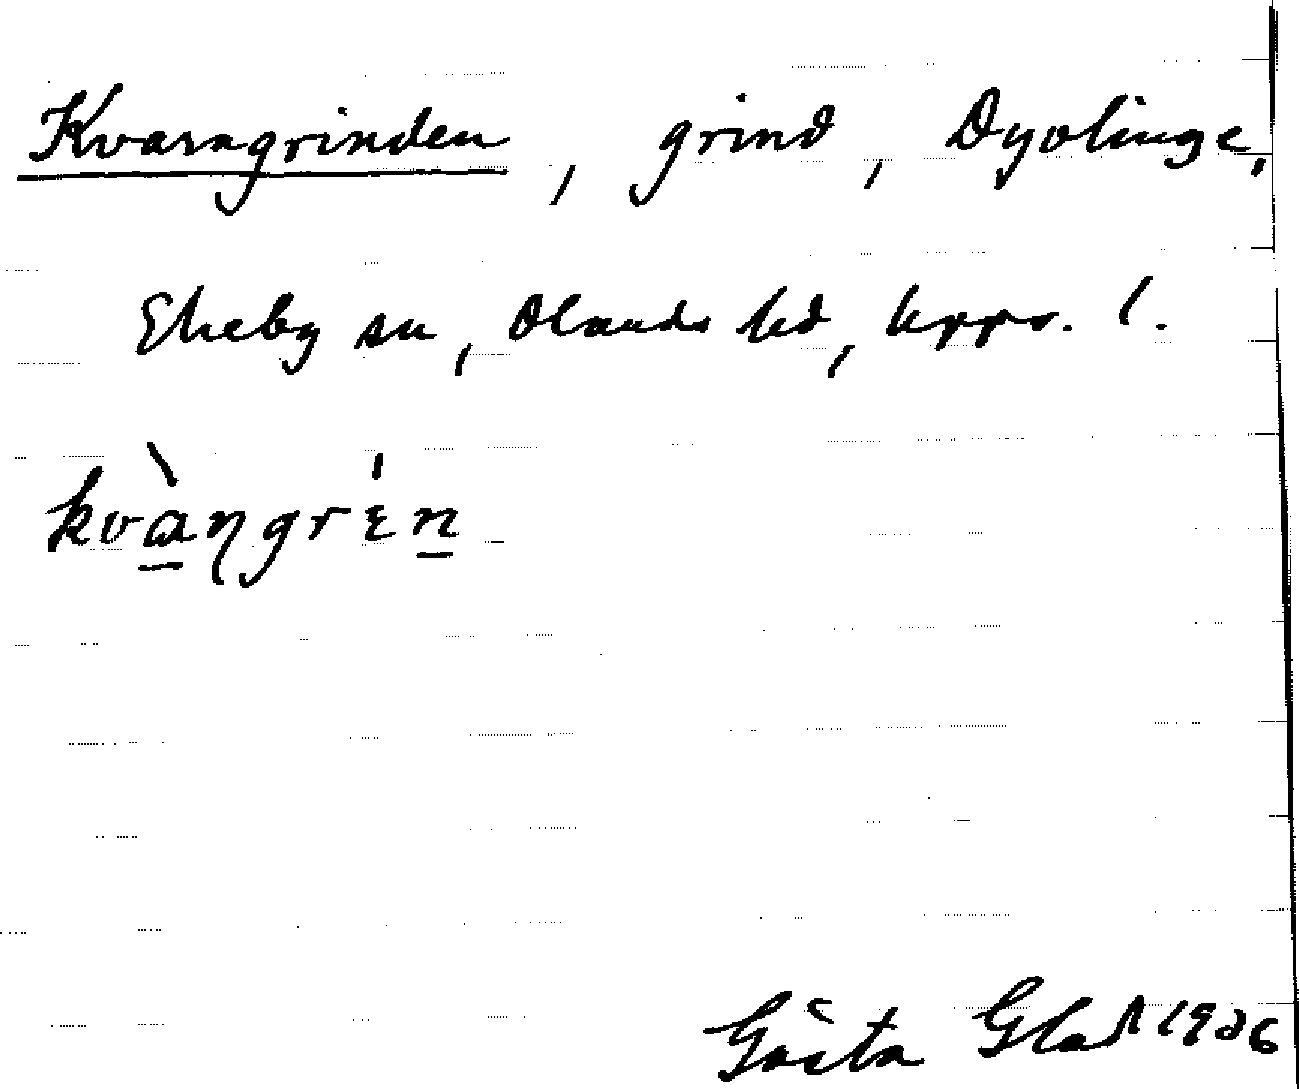 Kvarngrinden, grind, Dyvlinge,
Ekeby sn, Olands hd, Upps. l.
kvàŋgrɩ́n
Gösta Glas 1936